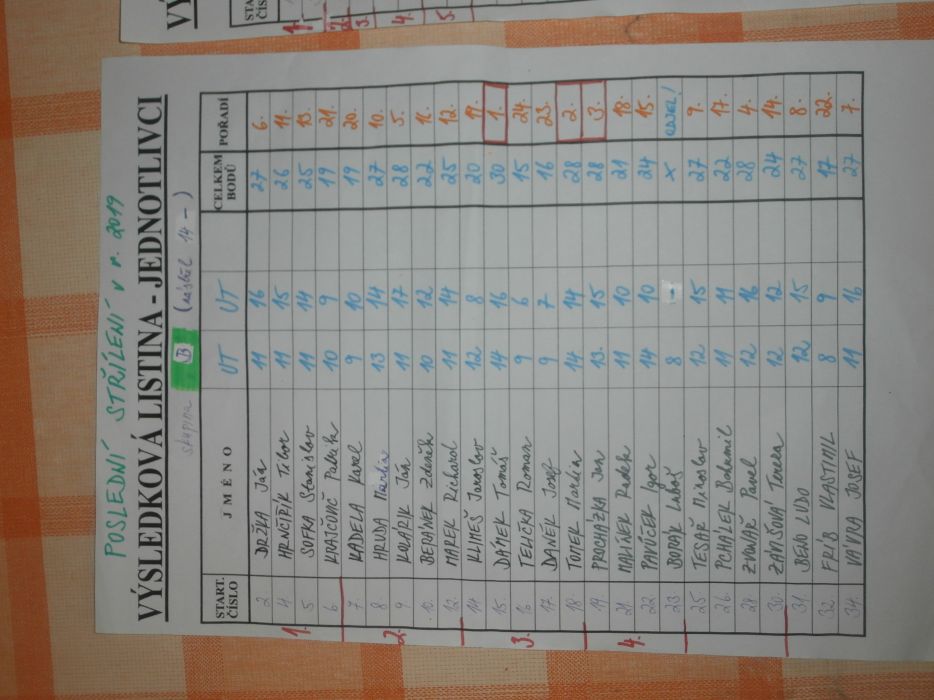 POSLEDNÍ STŘÍLENÍ v r. 2019
VÝSLEDKOVÁ LISTINA - JEDNOTLIVCI
skupina B (nástřel 14 - )
START. ČÍSLO JMÉNO UT UT CELKEM BODŮ POŘADÍ
2. DRŽKA Ján 11 16 27 6.
4. HRNČIŘÍK Tibor 11 15 26 11.
5 SOFKA Stanislav 11 14 25 13.
6. KRAJČOVIČ Patrik 10 9 19 21.
7. KADELA Karel 9 10 19 20.
8. HRUDA Martin 13 14 27 10.
9 KOLAŘÍK Ján 11 17 28 5.
10. BERÁNEK Zdeněk 10 12 22 16.
12. MAREK Richard 11 14 25 12.
14. KLIMEŠ Jaroslav 12 8 20 19.
15. DAMEK Tomáš 14 16 30 1.
16. TELIČKA Roman 9 6 15 24.
17. DANĚK Josef 9 7 16 23.
18. TOMEK Martin 14 14 28 2.
19. PROCHÁZKA Jan 13. 15 28 3.
21 MALÍNEK Radek 11 10 21 18.
22 PAVÍČEK Igor 14 10 24 15.
23 BORÁK Luboš 8 - x ODJEL!
25 TESAŘ Miroslav 12 15 27 9.
26. PCHÁLEK Bohumil 11 11 22 17.
28 ZVONAŘ Pavel 12 16 28 4.
30. ZÁVIŠOVÁ Tereza 12 12 24 14.
31. BENO LUDO 12 15 27 8.
32. FRIB VLASTIMIL 8 9 17 22.
34. VAVRA JOSEF 11 16 27 7.
1.
2.
3.
4.